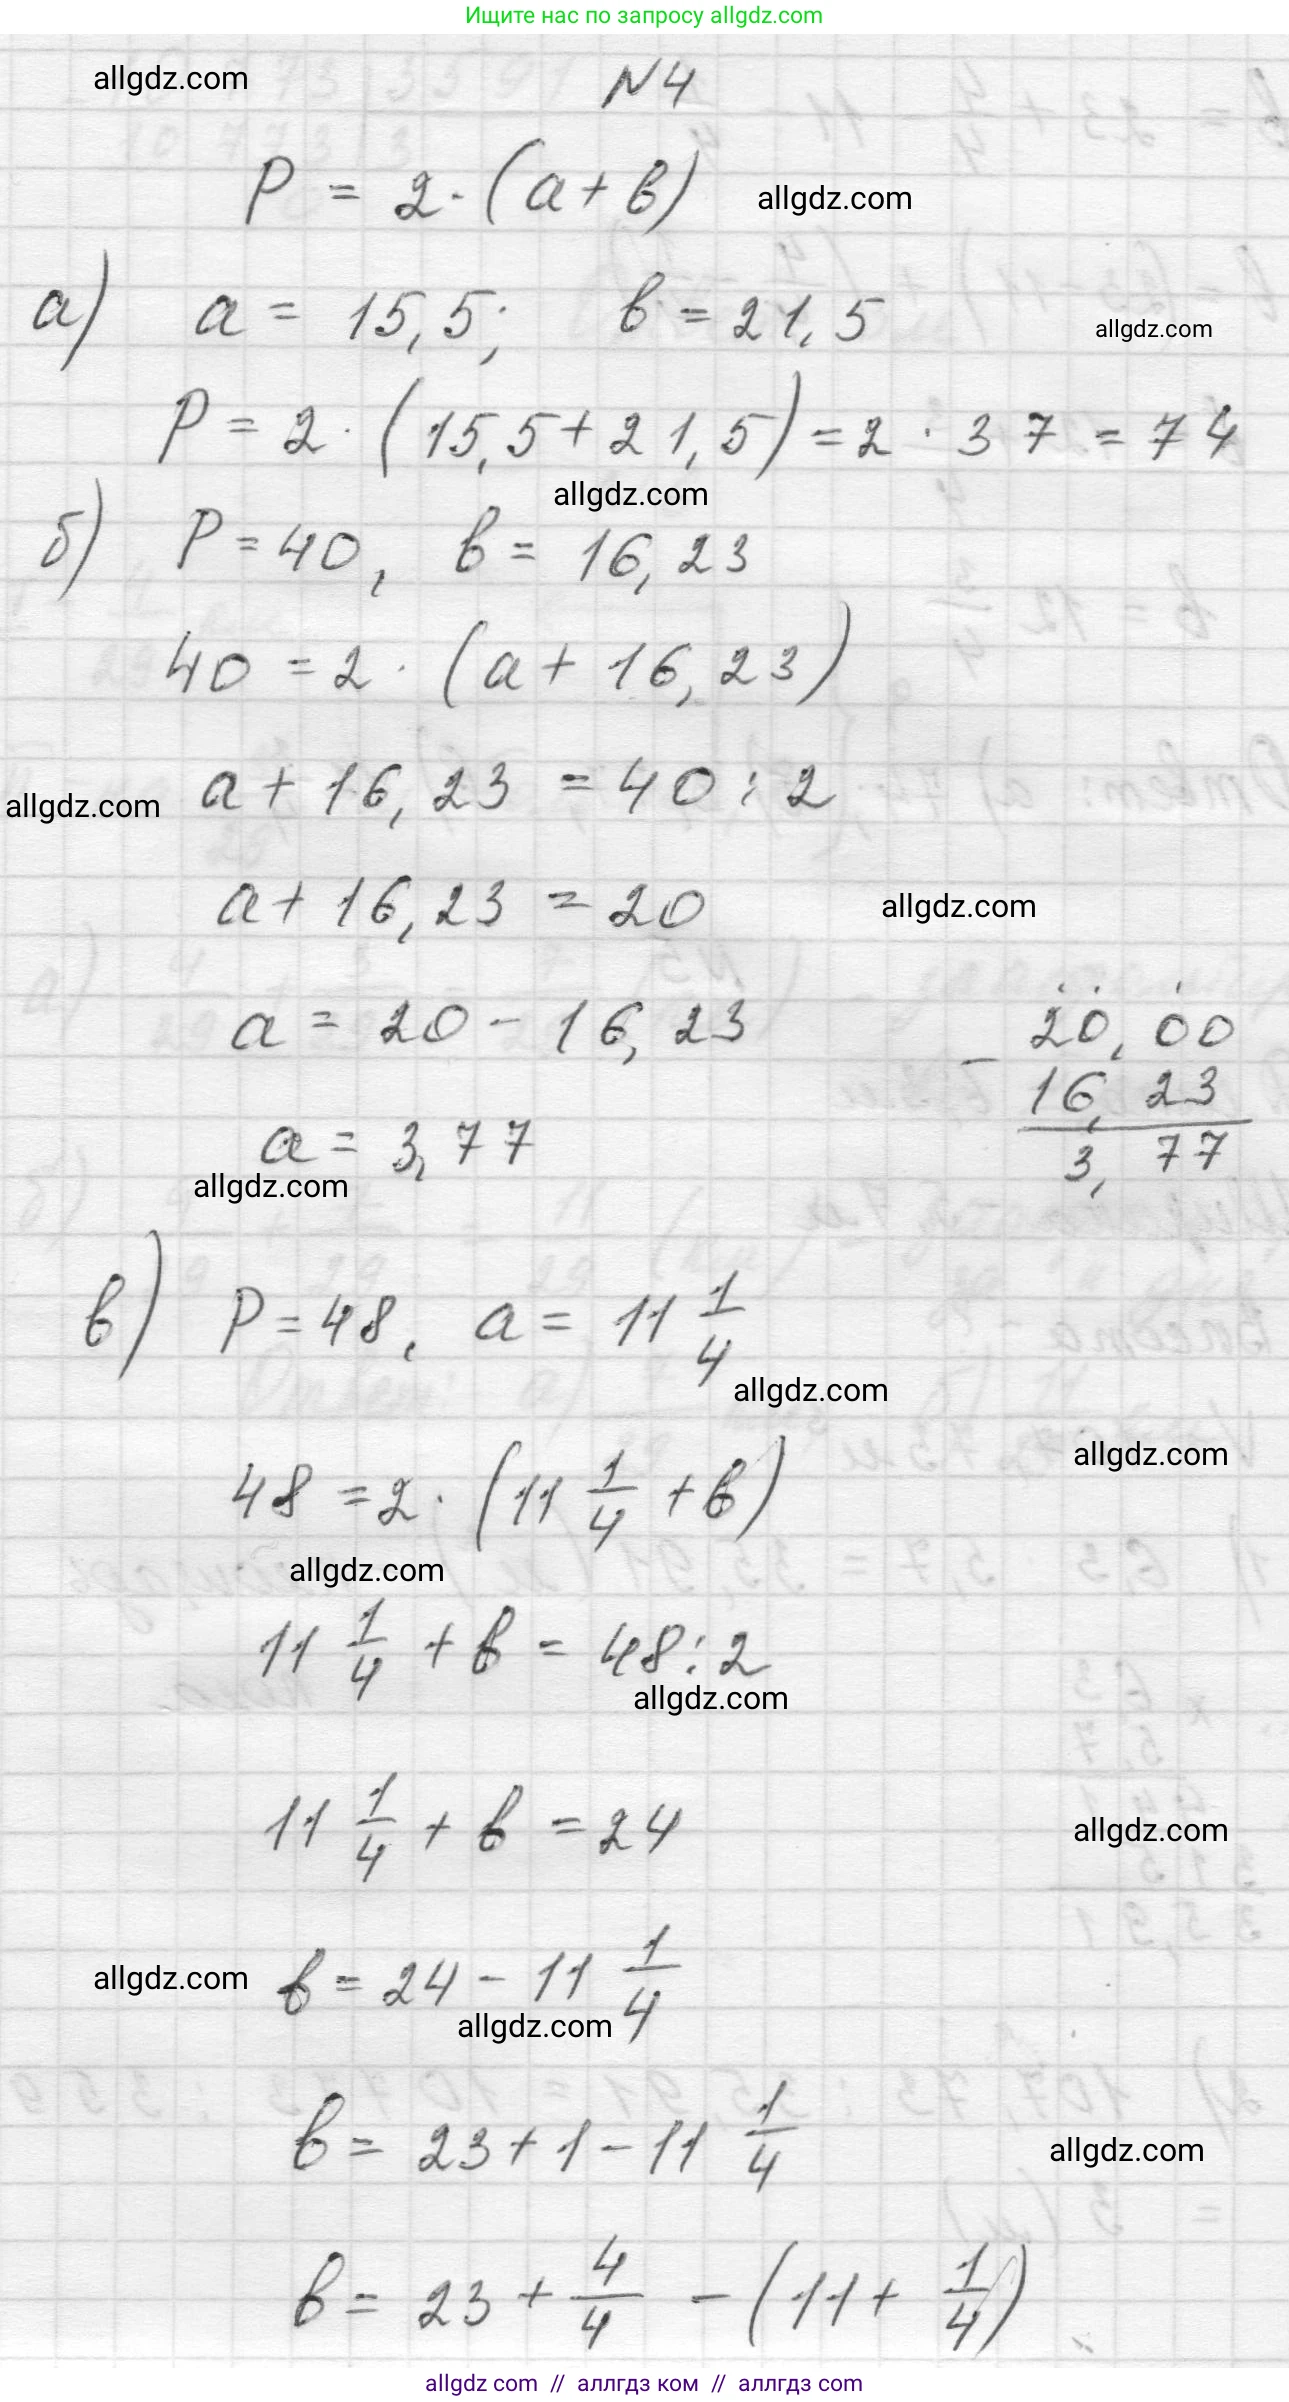 Ищите нас по запросу allgdz.com
allgdz.com
N4
P = 2·(a+b)
allgdz.com
а) a = 15,5; b = 21,5
allgdz.com
P = 2·(15,5+21,5) = 2·37 = 74
allgdz.com
б) P = 40, b = 16,23
40 = 2·(a+16,23)
a+16,23 = 40:2
allgdz.com
a+16,23 = 20
allgdz.com
a = 20 - 16,23
20,00
- 16,23
3,77
a = 3,77
allgdz.com
в) P = 48, a = 11 1/4
allgdz.com
allgdz.com
48 = 2·(11 1/4 + b)
allgdz.com
11 1/4 + b = 48:2
allgdz.com
11 1/4 + b = 24
allgdz.com
allgdz.com
b = 24 - 11 1/4
allgdz.com
b = 23 + 1 - 11 1/4
allgdz.com
b = 23 + 4/4 - (11 + 1/4)
allgdz com // аллгдз ком // аллгдз com